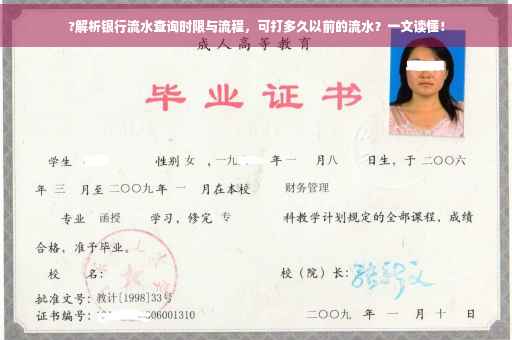 ?解析银行流水查询时限与流程，可打多久以前的流水？一文读懂！
成人高等教育
毕业证书
学生 性别 女 ，一九 年 一 月八 日生，于 二〇〇六
年 三 月至 二〇〇九 年 一 月在本校 财务管理
专业 函授 学习，修完 专 科教学计划规定的全部课程，成绩
合格，准予毕业。
校 名： 校（院）长：
批准文号：教计[1998]33号
证书编号： 06001310 二〇〇九 年 一 月 十 日